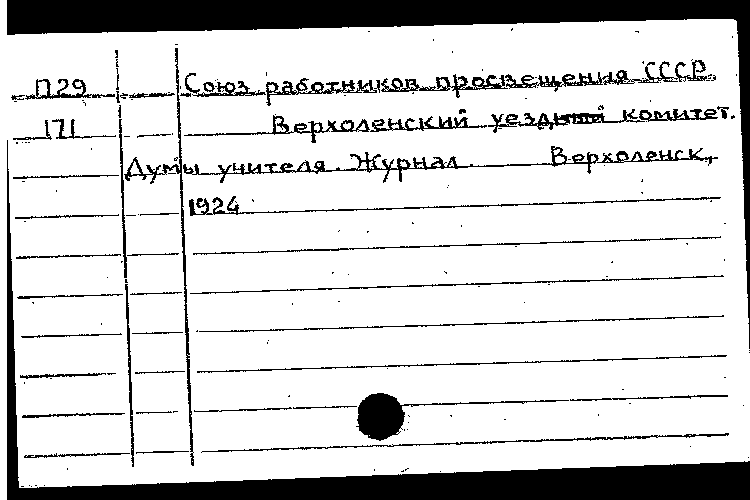 П29 Союз работников просвещения СССР
171 Верхоленский уездный комитет.
Думы учителя. Журнал. Верхоленск,
1924